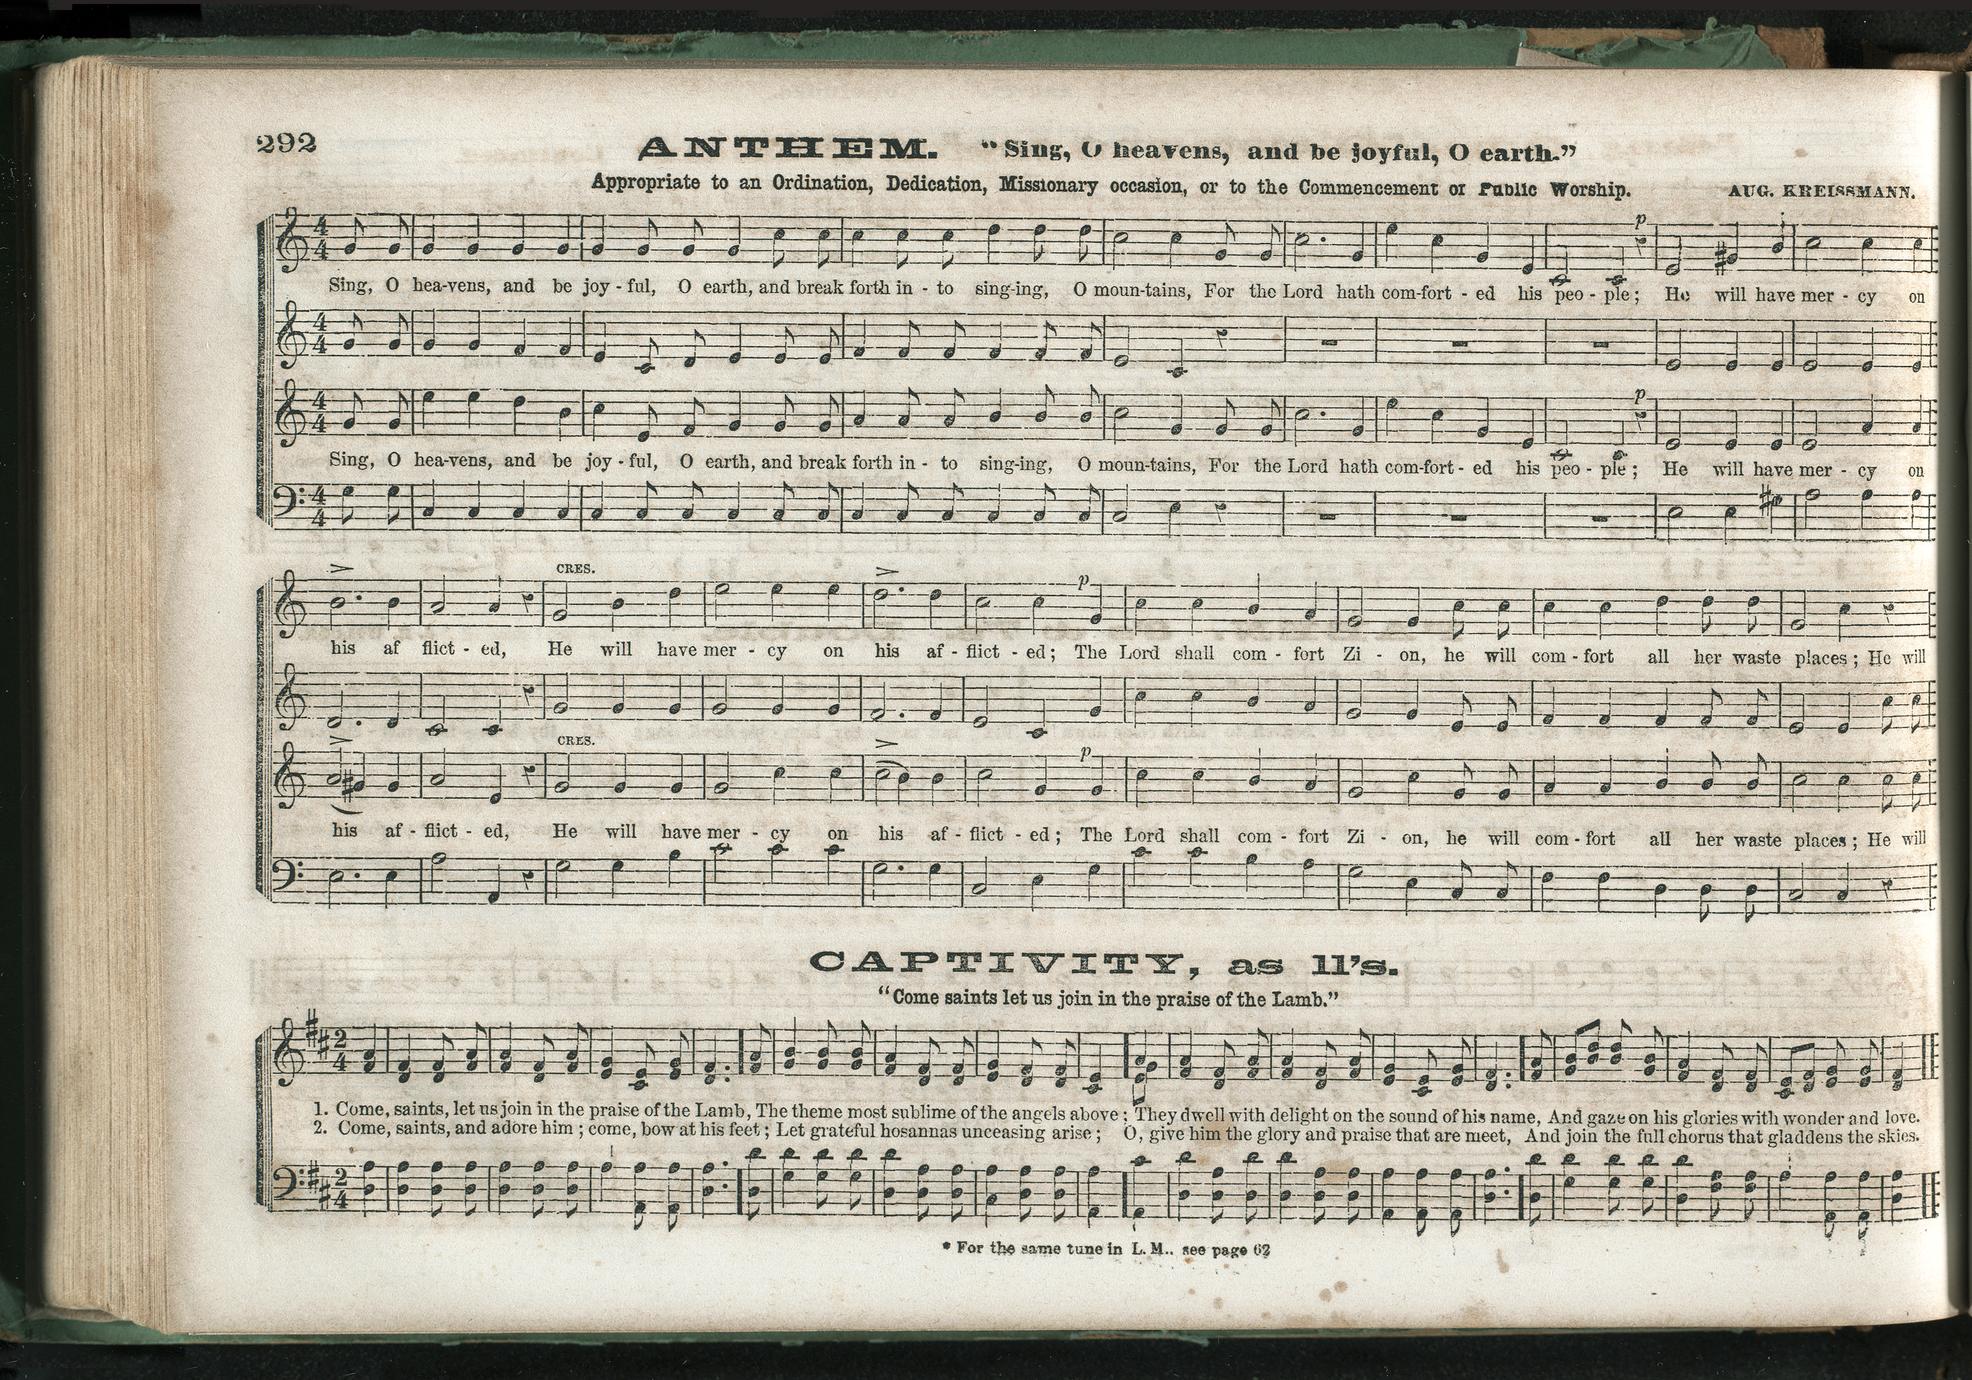 292
ANTHEM. "Sing, O heavens, and be joyful, O earth."
Appropriate to an Ordination, Dedication, Missionary occasion, or to the Commencement of Public Worship. AUG. KREISSMANN.
p
Sing, O hea-vens, and be joy - ful, O earth, and break forth in - to sing-ing, O moun-tains, For the Lord hath com-fort - ed his peo - ple; He will have mer - cy on
p
Sing, O hea-vens, and be joy - ful, O earth, and break forth in - to sing-ing, O moun-tains, For the Lord hath com-fort - ed his peo - ple; He will have mer - cy on
CRES.
p
his af flict - ed, He will have mer - cy on his af - flict - ed; The Lord shall com - fort Zi - on, he will com - fort all her waste places; He will
CRES.
p
his af - flict - ed, He will have mer - cy on his af - flict - ed; The Lord shall com - fort Zi - on, he will com - fort all her waste places; He will
CAPTIVITY, as 11's.
"Come saints let us join in the praise of the Lamb."
1. Come, saints, let us join in the praise of the Lamb, The theme most sublime of the angels above; They dwell with delight on the sound of his name, And gaze on his glories with wonder and love.
2. Come, saints, and adore him; come, bow at his feet; Let grateful hosannas unceasing arise; O, give him the glory and praise that are meet, And join the full chorus that gladdens the skies.
* For the same tune in L. M., see page 62